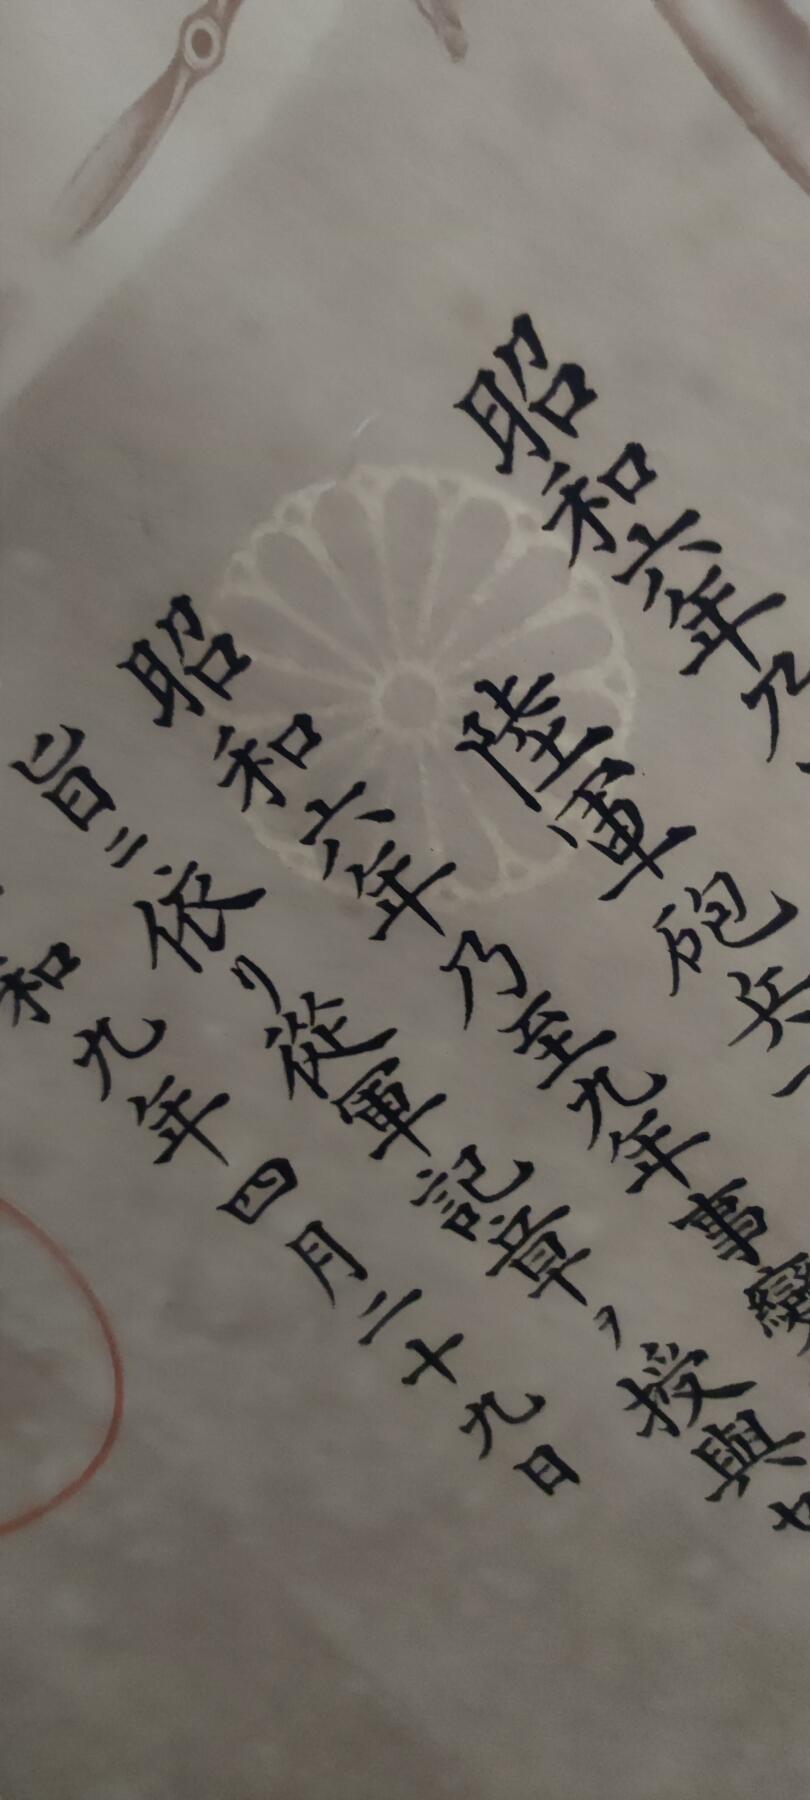 昭和六年乃
陸軍砲兵
昭和六年乃至九年事變
旨ニ依リ從軍記章ヲ授與セ
和九年四月二十九日